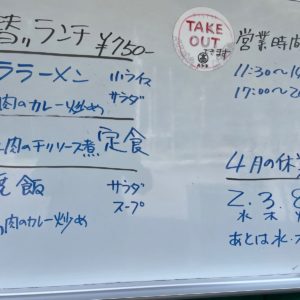 ランチ ¥750-
ラーメン 小ライス
サラダ
肉のカレー炒め
肉のチリソース煮 定食
飯 サラダ
スープ
肉のカレー炒め
TAKE
OUT
営業時間
11:30〜
17:00〜
4月の休
2. 3.
水 木
あとは水.